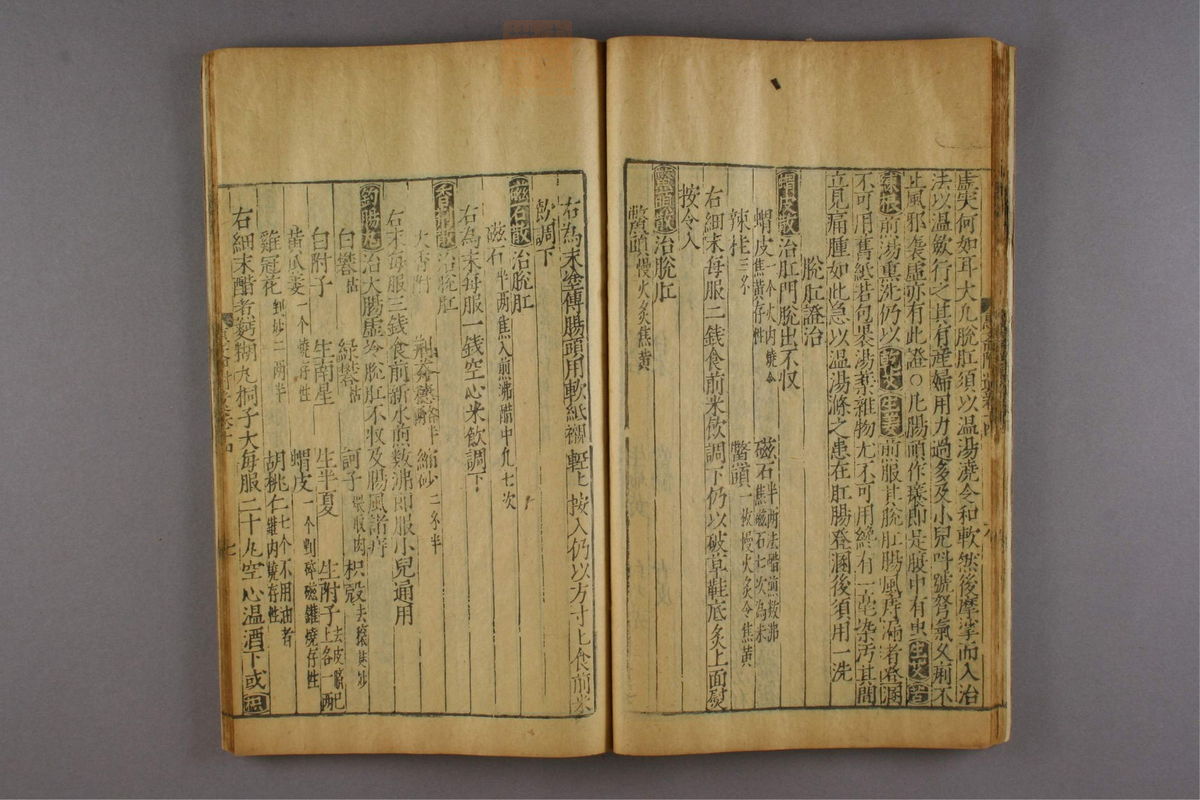 虛実何如耳大凡脫肛須以温湯澆令和軟然後摩挲而入治
法以温歛行之其有産婦用力過多及小兒呌號努氣久痢不
止風邪襲虛亦有此證○凡腸頭作癢即是腹中有虫生艾苦
練根前湯熏洗仍以乾艾生姜煎服其脫肛腸風痔漏者登溷
不可用舊紙若包果湯藥雜物尤不可用緣有一毫染汚其間
立見痛腫如此急以温湯滌之患在肛腸登溷後須用一洗
脫肛證治
蝟皮散治肛門脫出不収
蝟皮一个火内燒令焦黄存性 磁石半兩法醋煎数沸焦磁石七次為末
辣桂三分 鱉頭一枚慢火炙令焦黄
右細末每服二錢食前米飲調下仍以破草鞋底炙上面熨
按令入
鱉頭散治脫肛
鱉頭慢火炙焦黄
右為末塗傅腸頭用軟紙襯輕上按入仍以方寸匕食前米
飲調下
磁石散治脫肛
磁石半兩焦入煎沸醋中凡七次
右為末每服一錢空心米飲調下
香荊散治脫肛
大香附 荊芥穗各半兩 縮砂二分半
右末每服三錢食前新水煎数沸即服小兒通用
釣腸丸治大腸虛冷脫肛不収及腸風諸痔
白礬枯 綠礬枯 訶子煨取肉 枳殼去穰麩炒
白附子 生南星 生半夏 生附子去皮臍已上各一兩
黄瓜蔞一个燒存性 蝟皮一个剉碎磁罐燒存性
雞冠花剉炒二兩半 胡桃仁七个不用油者罐内燒存性
右細末醋煮麪糊丸桐子大每服二十丸空心温酒下或枳
七